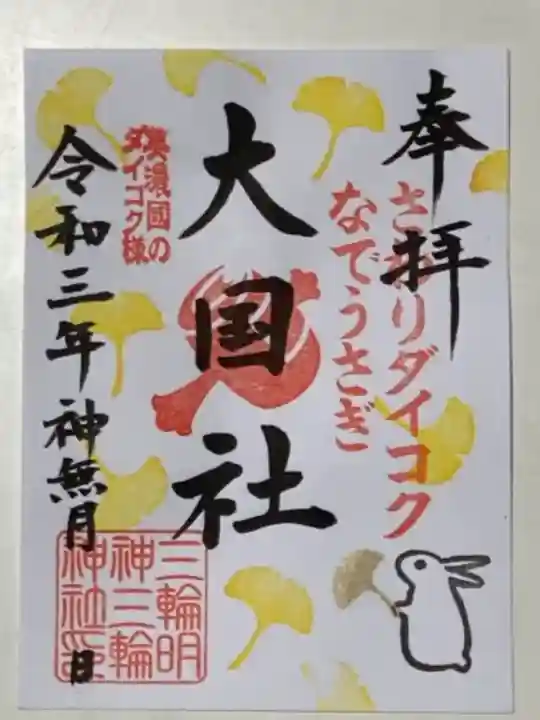 奉拝
さわりダイコク
なでうさぎ
大国社
美濃國の
ダイコク様
令和三年神無月
日
三輪明
神三輪
神社印